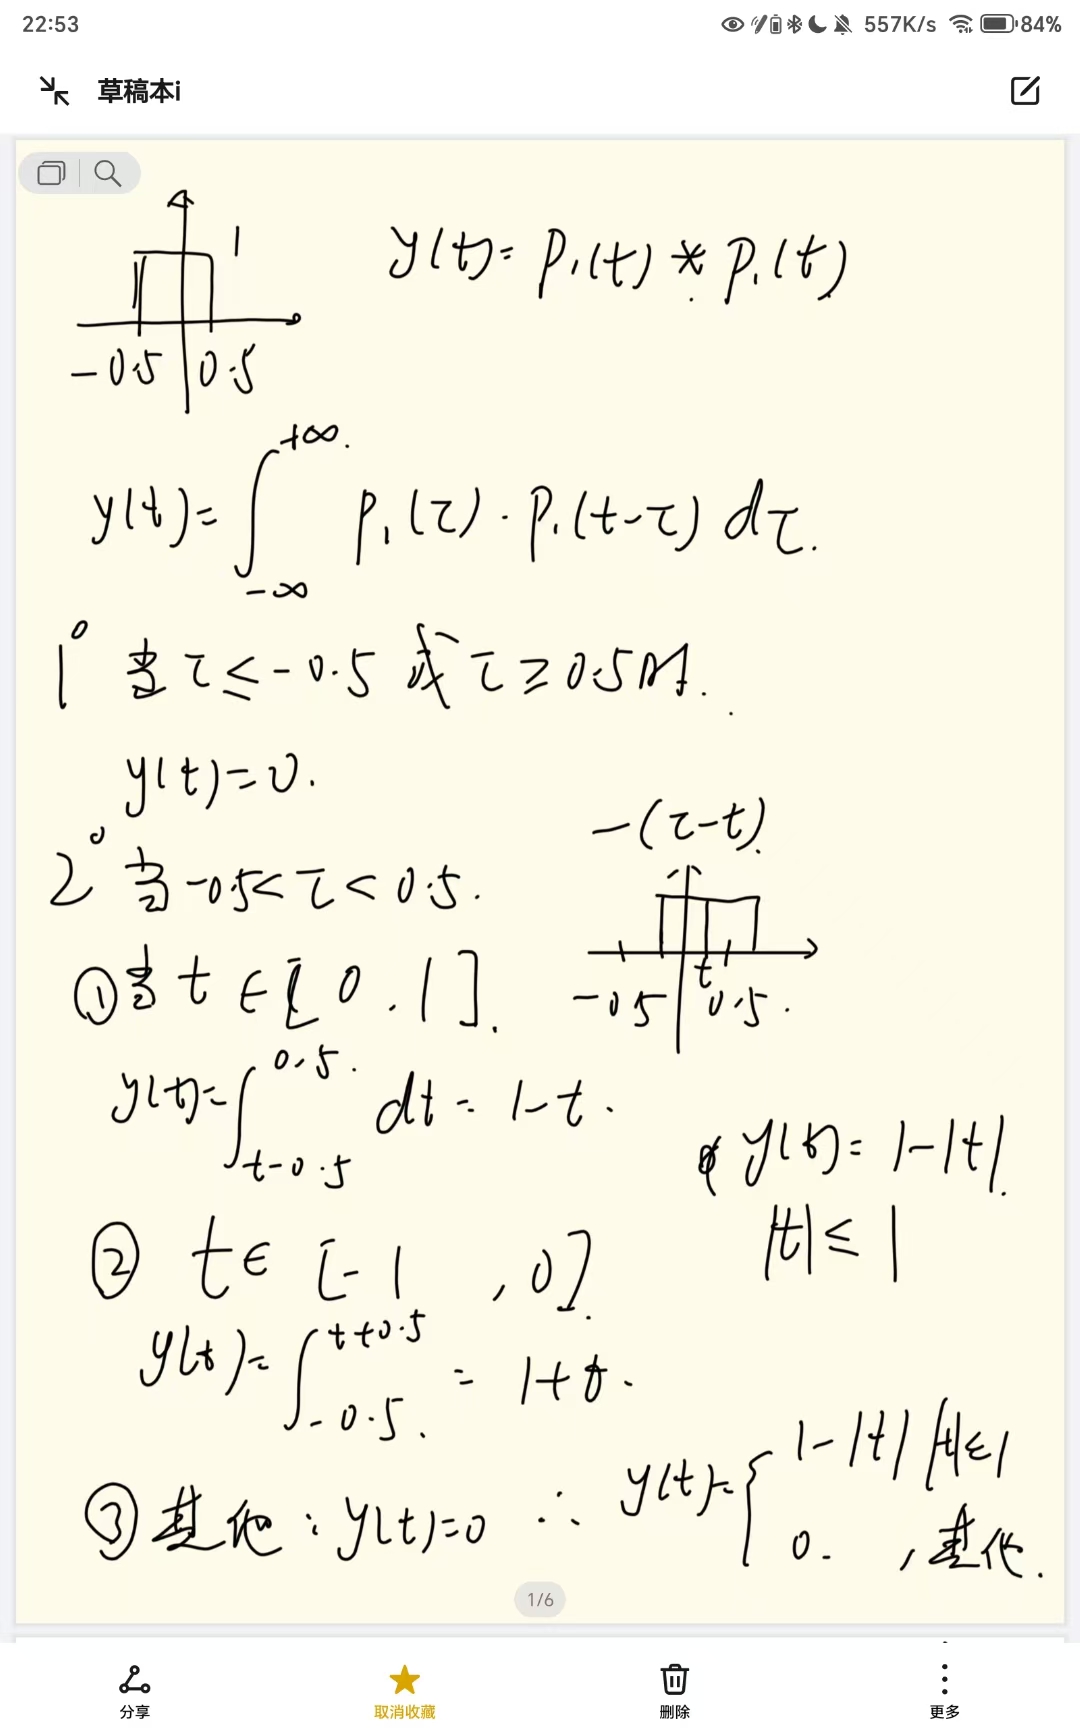 22:53
557K/s 84%
草稿本i
1
y(t)= p₁(t) * p₁(t)
-0.5 0.5
y(t)= ∫_{-∞}^{+∞} p₁(τ)·p₁(t-τ) dτ.
1° 当 τ ≤ -0.5 或 τ ≥ 0.5时.
y(t)=0.
-(τ-t)
2° 当 -0.5< τ < 0.5.
① 当 t ∈ [0,1].
-0.5 t 0.5.
y(t)= ∫_{t-0.5}^{0.5} dt = 1-t.
y(t)= 1-|t|.
|t| ≤ 1
② t∈ [-1,0].
y(t)= ∫_{-0.5}^{t+0.5} = 1+t.
③ 其他: y(t)=0 ∴ y(t)= { 1-|t| |t|≤1
0. , 其他.
1/6
分享 取消收藏 删除 更多